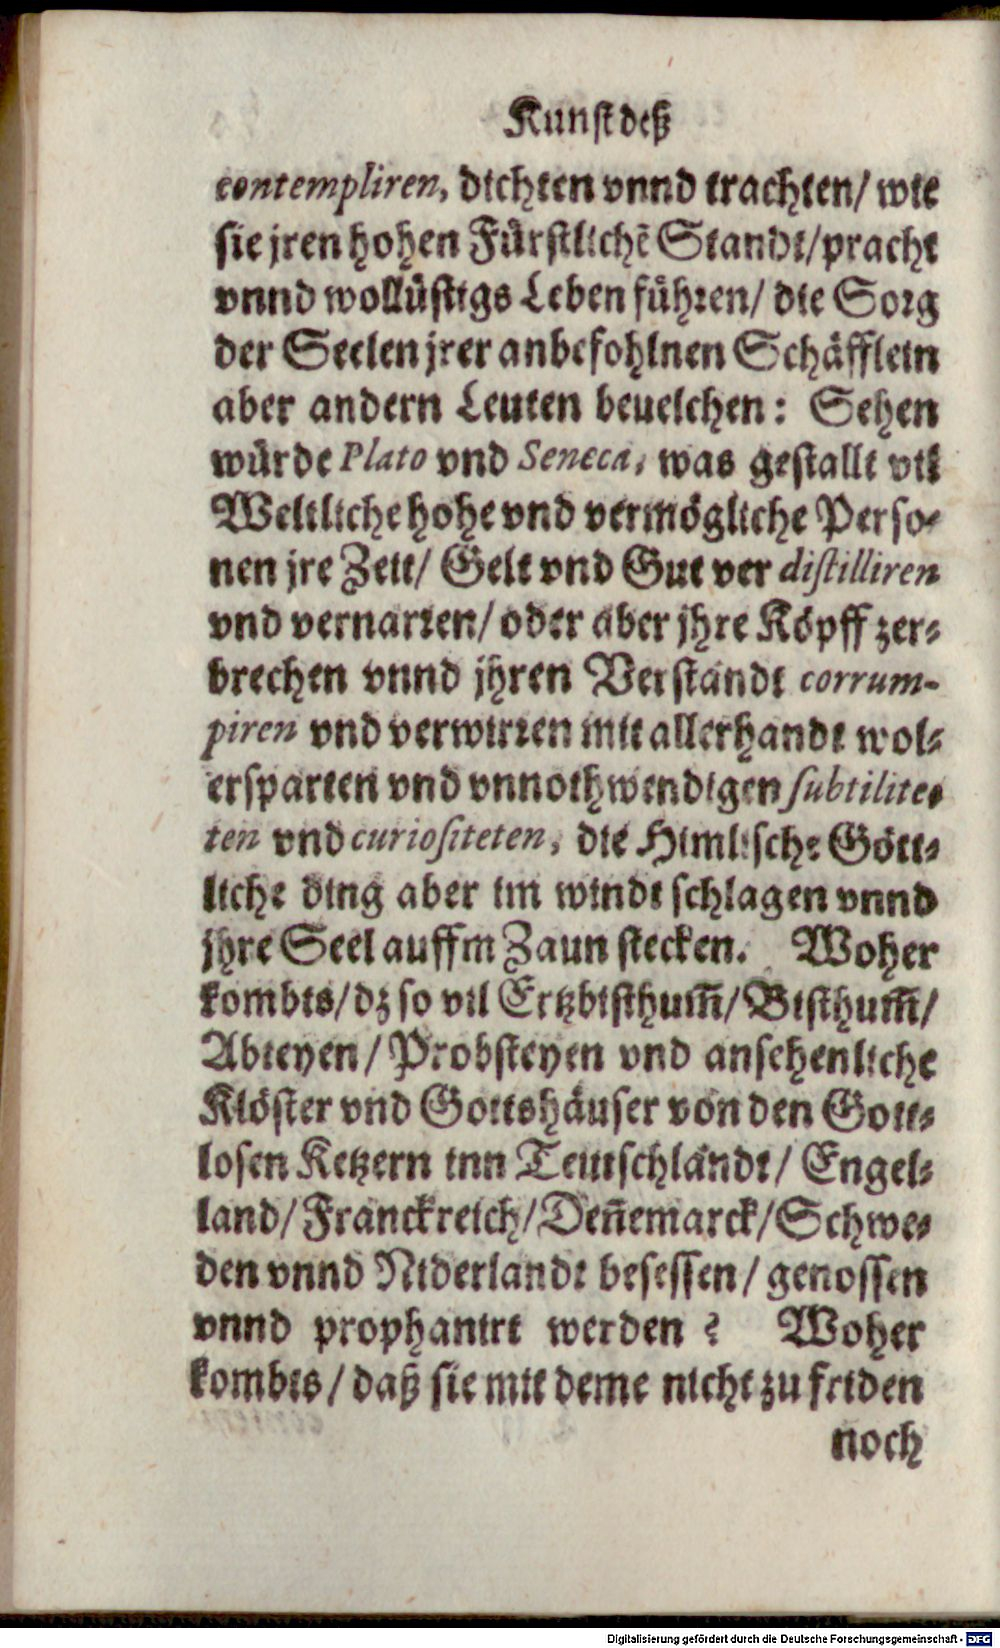 Kunst deß
contempliren, dichten vnnd trachten/ wie
sie jren hohen Fürstlichẽ Standt/pracht
vnnd wollüstigs Leben führen/ die Sorg
der Seelen jrer anbefohlnen Schäfflein
aber andern Leuten beuelchen: Sehen
würde Plato vnd Seneca, was gestallt vil
Weltliche hohe vnd vermögliche Perso-
nen jre Zeit/ Gelt vnd Gut ver distilliren
vnd vernarren/ oder aber jhre Köpff zer-
brechen vnnd jhren Verstandt corrum-
piren vnd verwirren mit allerhandt wol-
ersparten vnd vnnothwendigen subtilite-
ten vnd curiositeten, die Himlische Gött-
liche ding aber im windt schlagen vnnd
jhre Seel auffm Zaun stecken. Woher
kombts/dz so vil Ertzbisthum̃/Bisthum̃/
Abteyen/Probsteyen vnd ansehenliche
Klöster vnd Gottshäuser von den Gott-
losen Ketzern inn Teutschlandt/ Engel-
land/Franckreich/Deñemarck/Schwe-
den vnnd Niderlandt besessen/ genossen
vnnd prophanirt werden? Woher
kombts/daß sie mit deme nicht zu friden
noch
Digitalisierung gefördert durch die Deutsche Forschungsgemeinschaft - DFG